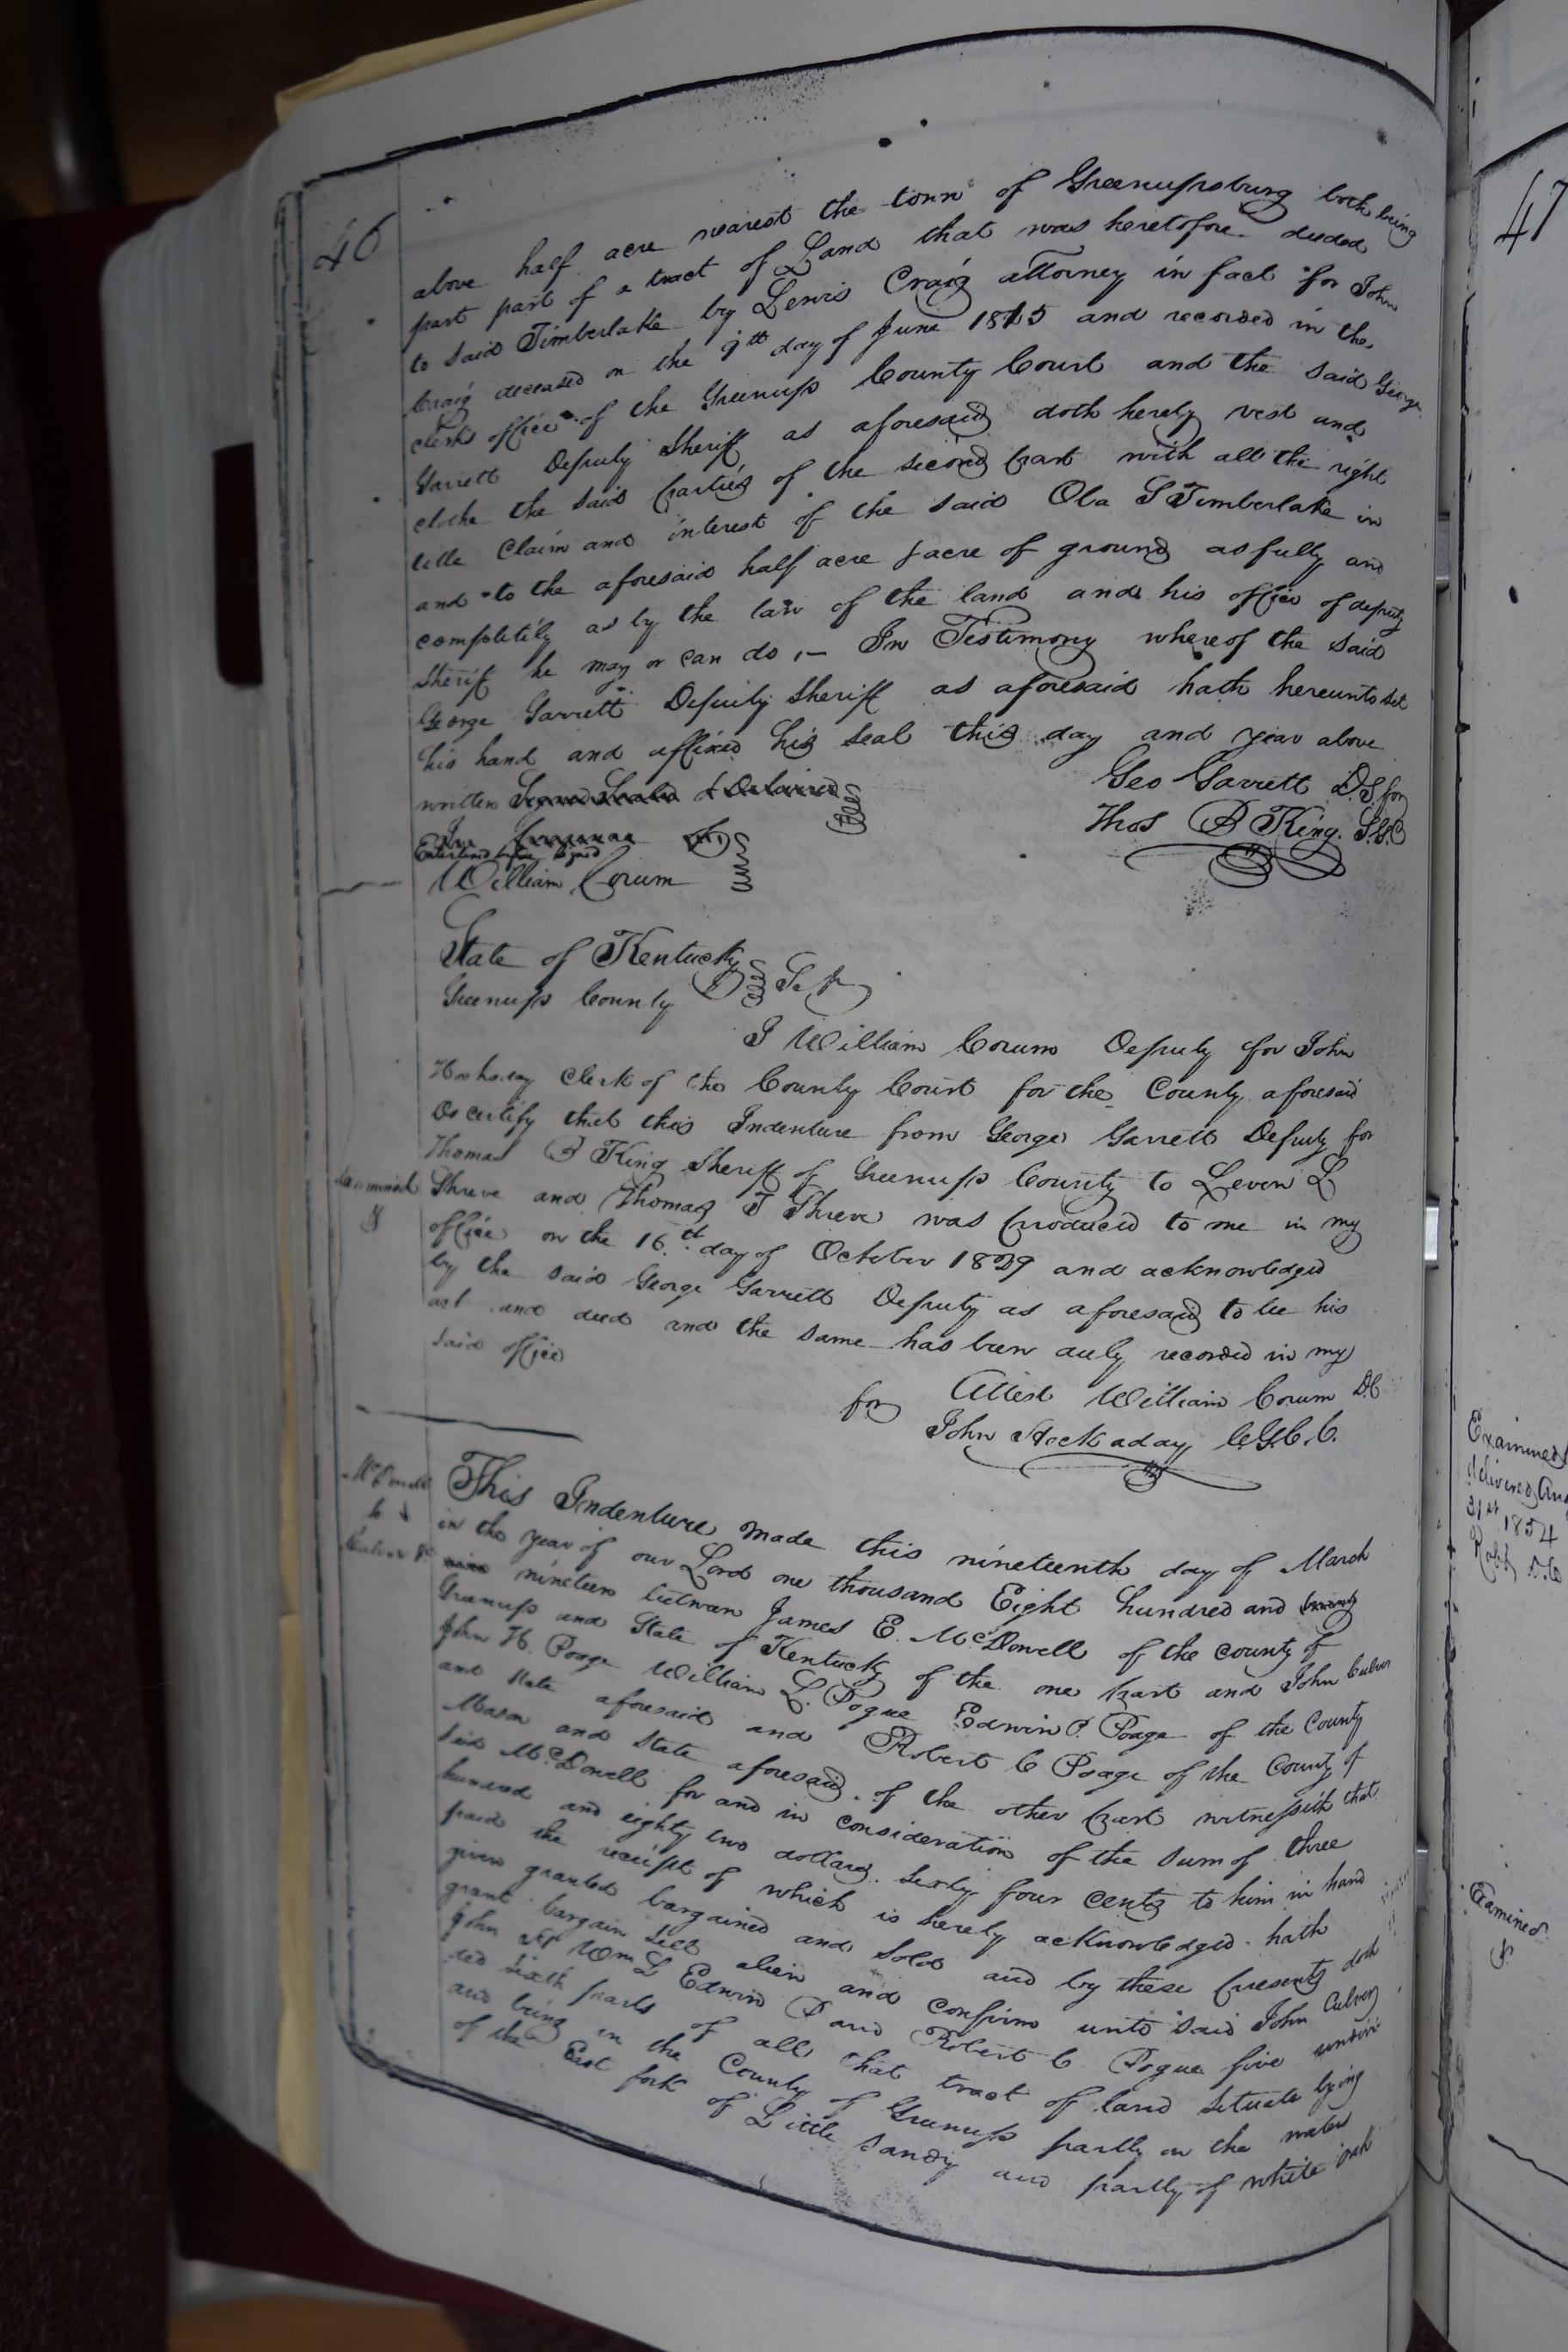 46
above half acre nearest the town of Greenupsburg both being
part part of a tract of Land that was heretofore deeded
to said Timberlake by Lewis Craig attorney in fact for John
Craig deceased on the 9th day of June 1815 and recorded in the
clerks office of the Greenup County Court and the said George
Garrett Deputy Sheriff as aforesaid doth hereby vest and
clothe the said parties of the second part with all the right
title Claim and interest of the said Oba S Timberlake in
and to the aforesaid half acre & acre of ground as fully and
completely as by the law of the land and his office of deputy
Sheriff he may or can do, — In Testimony whereof the said
George Garrett Deputy Sheriff as aforesaid hath hereunto set
his hand and affixed his seal this day and year above
written Signed Sealed & Delivered
Geo Garrett D.S. for
In presence of
Thos B King. S.G.C
Enterlined before signed
William Corum
State of Kentucky
Greenup County Sct
I William Corum Deputy for John
Hockaday Clerk of the County Court for the County aforesaid
Do certify that this Indenture from George Garrett Deputy for
Thomas B King Sheriff of Greenup County to Leven L
Examined Shreve and Thomas T Shreve was produced to me in my
office on the 16th day of October 1829 and acknowledged
by the said George Garrett Deputy as aforesaid to be his
act and deed and the same has been duly recorded in my
said office
Attest William Corum D.C
for John Hockaday C.G.C.C.
McDowell
to
Culver &c
This Indenture made this nineteenth day of March
in the year of our Lord one thousand Eight hundred and twenty
nine nineteen between James E. McDowell of the county of
Greenup and State of Kentucky of the one part and John Culver
John H. Poage William L. Pogue Edwin P. Poage of the County
and State aforesaid and Robert C Poage of the County of
Mason and State aforesaid of the other part witnesseth that
said McDowell for and in consideration of the sum of three
hundred and eighty two dollars Sixty four cents to him in hand
paid the receipt of which is hereby acknowledged hath
given granted bargained and sold and by these presents doth
grant bargain sell alien and confirm unto said John Culver
John H Wm L Edwin P and Robert C Pogue five undivi
ded sixth parts of all that tract of land situate lying
and being in the County of Greenup partly on the water
of the East fork of Little Sandy and partly of white oak
47
Examined
delivered Aug
31st 1854
Examined